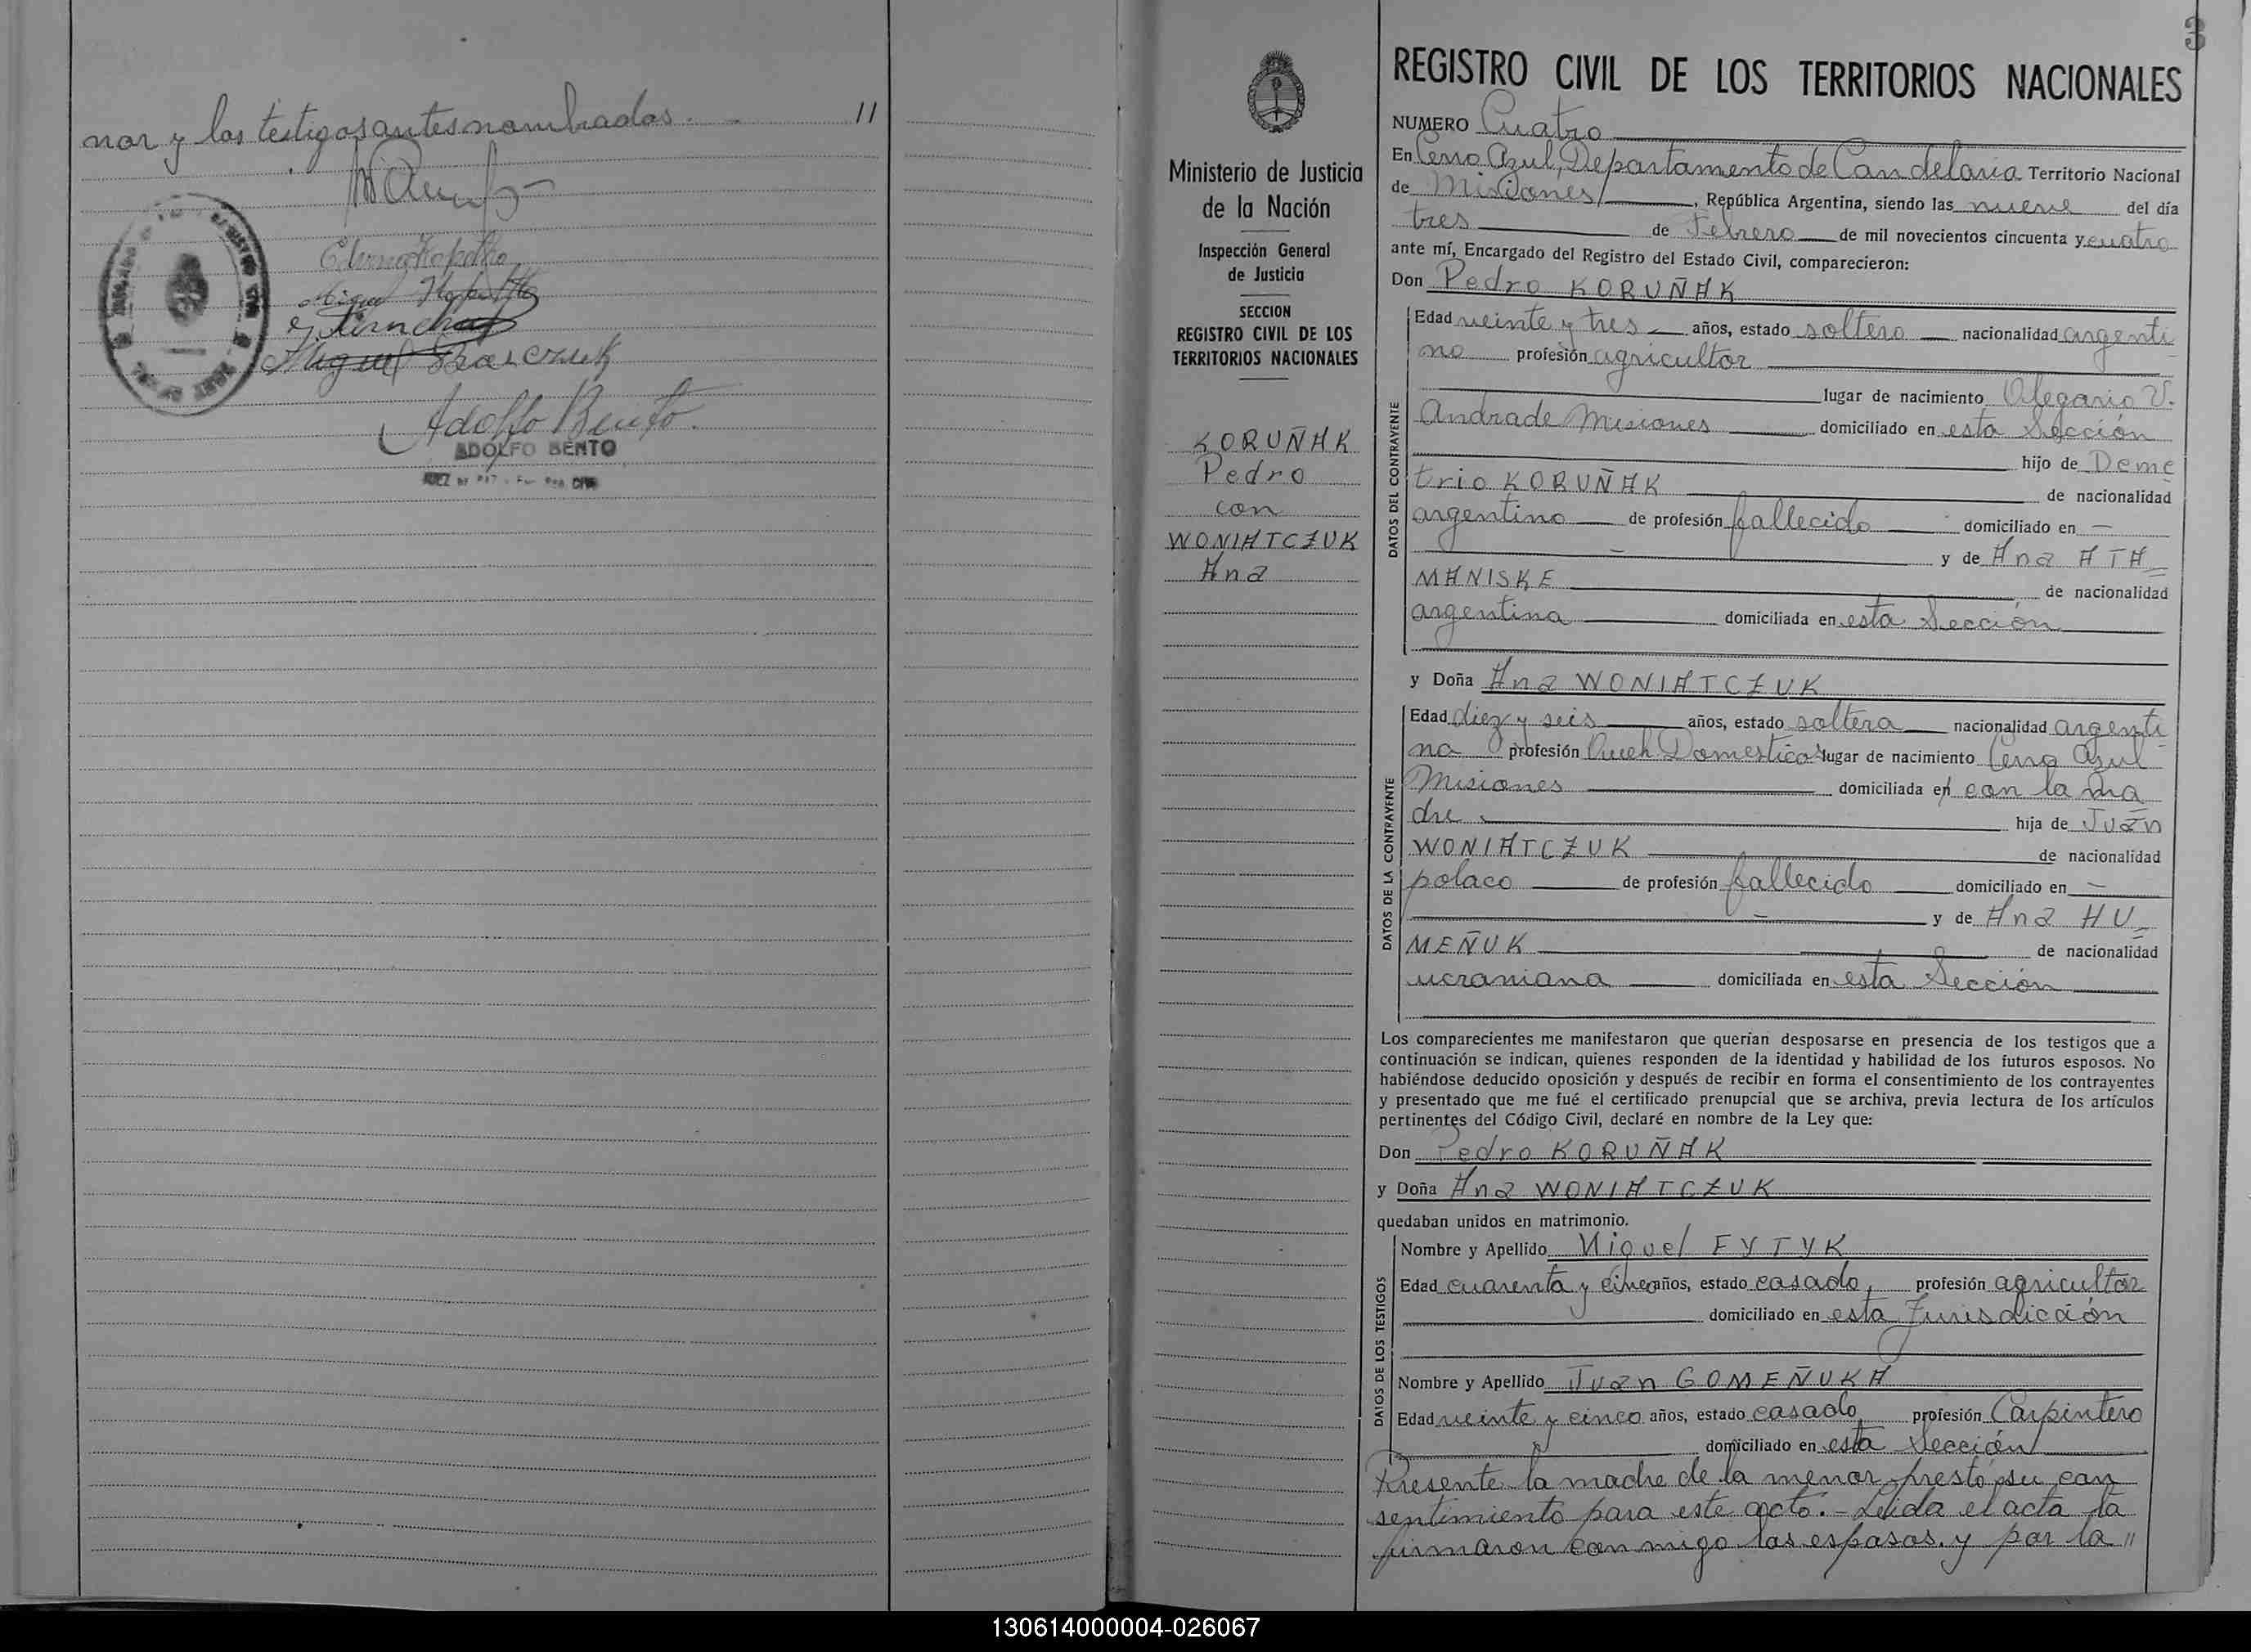 nor y los testigos antes nombrados. 11
Miguel
ADOLFO BENTO
Adolfo Bento.
3
Ministerio de Justicia
de la Nación
Inspección General
de Justicia
SECCION
REGISTRO CIVIL DE LOS
TERRITORIOS NACIONALES
KORUÑAK
Pedro
con
WONIATCZUK
Ana
REGISTRO CIVIL DE LOS TERRITORIOS NACIONALES
NUMERO Cuatro
En Cerro Azul, Departamento de Candelaria Territorio Nacional
de Misiones, República Argentina, siendo las nueve del día
tres de Febrero de mil novecientos cincuenta y cuatro
ante mí, Encargado del Registro del Estado Civil, comparecieron:
Don Pedro KORUÑAK
DATOS DEL CONTRAYENTE
Edad veinte y tres años, estado soltero nacionalidad argenti
no profesión agricultor
lugar de nacimiento Olegario V.
Andrade Misiones domiciliado en esta Sección
hijo de Deme
trio KORUÑAK de nacionalidad
argentino de profesión fallecido domiciliado en —
y de Ana ATA=
MANISKE de nacionalidad
argentina domiciliada en esta Sección
y Doña Ana WONIATCZUK
DATOS DE LA CONTRAYENTE
Edad diez y seis años, estado soltera nacionalidad argenti
na profesión Queh. Domesticos lugar de nacimiento Cerro Azul
Misiones domiciliada en con la ma
dre hija de Juan
WONIATCZUK de nacionalidad
polaco de profesión fallecido domiciliado en —
y de Ana HU=
MEÑUK de nacionalidad
ucraniana domiciliada en esta Sección
Los comparecientes me manifestaron que querían desposarse en presencia de los testigos que a
continuación se indican, quienes responden de la identidad y habilidad de los futuros esposos. No
habiéndose deducido oposición y después de recibir en forma el consentimiento de los contrayentes
y presentado que me fué el certificado prenupcial que se archiva, previa lectura de los artículos
pertinentes del Código Civil, declaré en nombre de la Ley que:
Don Pedro KORUÑAK
y Doña Ana WONIATCZUK
quedaban unidos en matrimonio.
DATOS DE LOS TESTIGOS
Nombre y Apellido Miguel FYTYK
Edad cuarenta y cinco años, estado casado, profesión agricultor
domiciliado en esta Jurisdicción
Nombre y Apellido Juan GOMEÑUKA
Edad veinte y cinco años, estado casado, profesión Carpintero
domiciliado en esta Sección
Presente la madre de la menor prestó su con
sentimiento para este acto.- Leida el acta la
firmaron conmigo los esposos y por la "
130614000004-026067